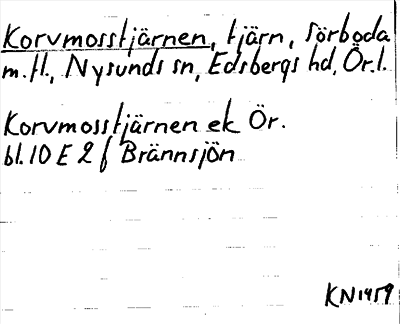 Korvmosstjärnen, tjärn, Sörboda
m.fl., Nysunds sn, Edsbergs hd, Ör.l.
Korvmosstjärnen ek Ör.
bl. 10 E 2 f Brännsjön
KN 1959